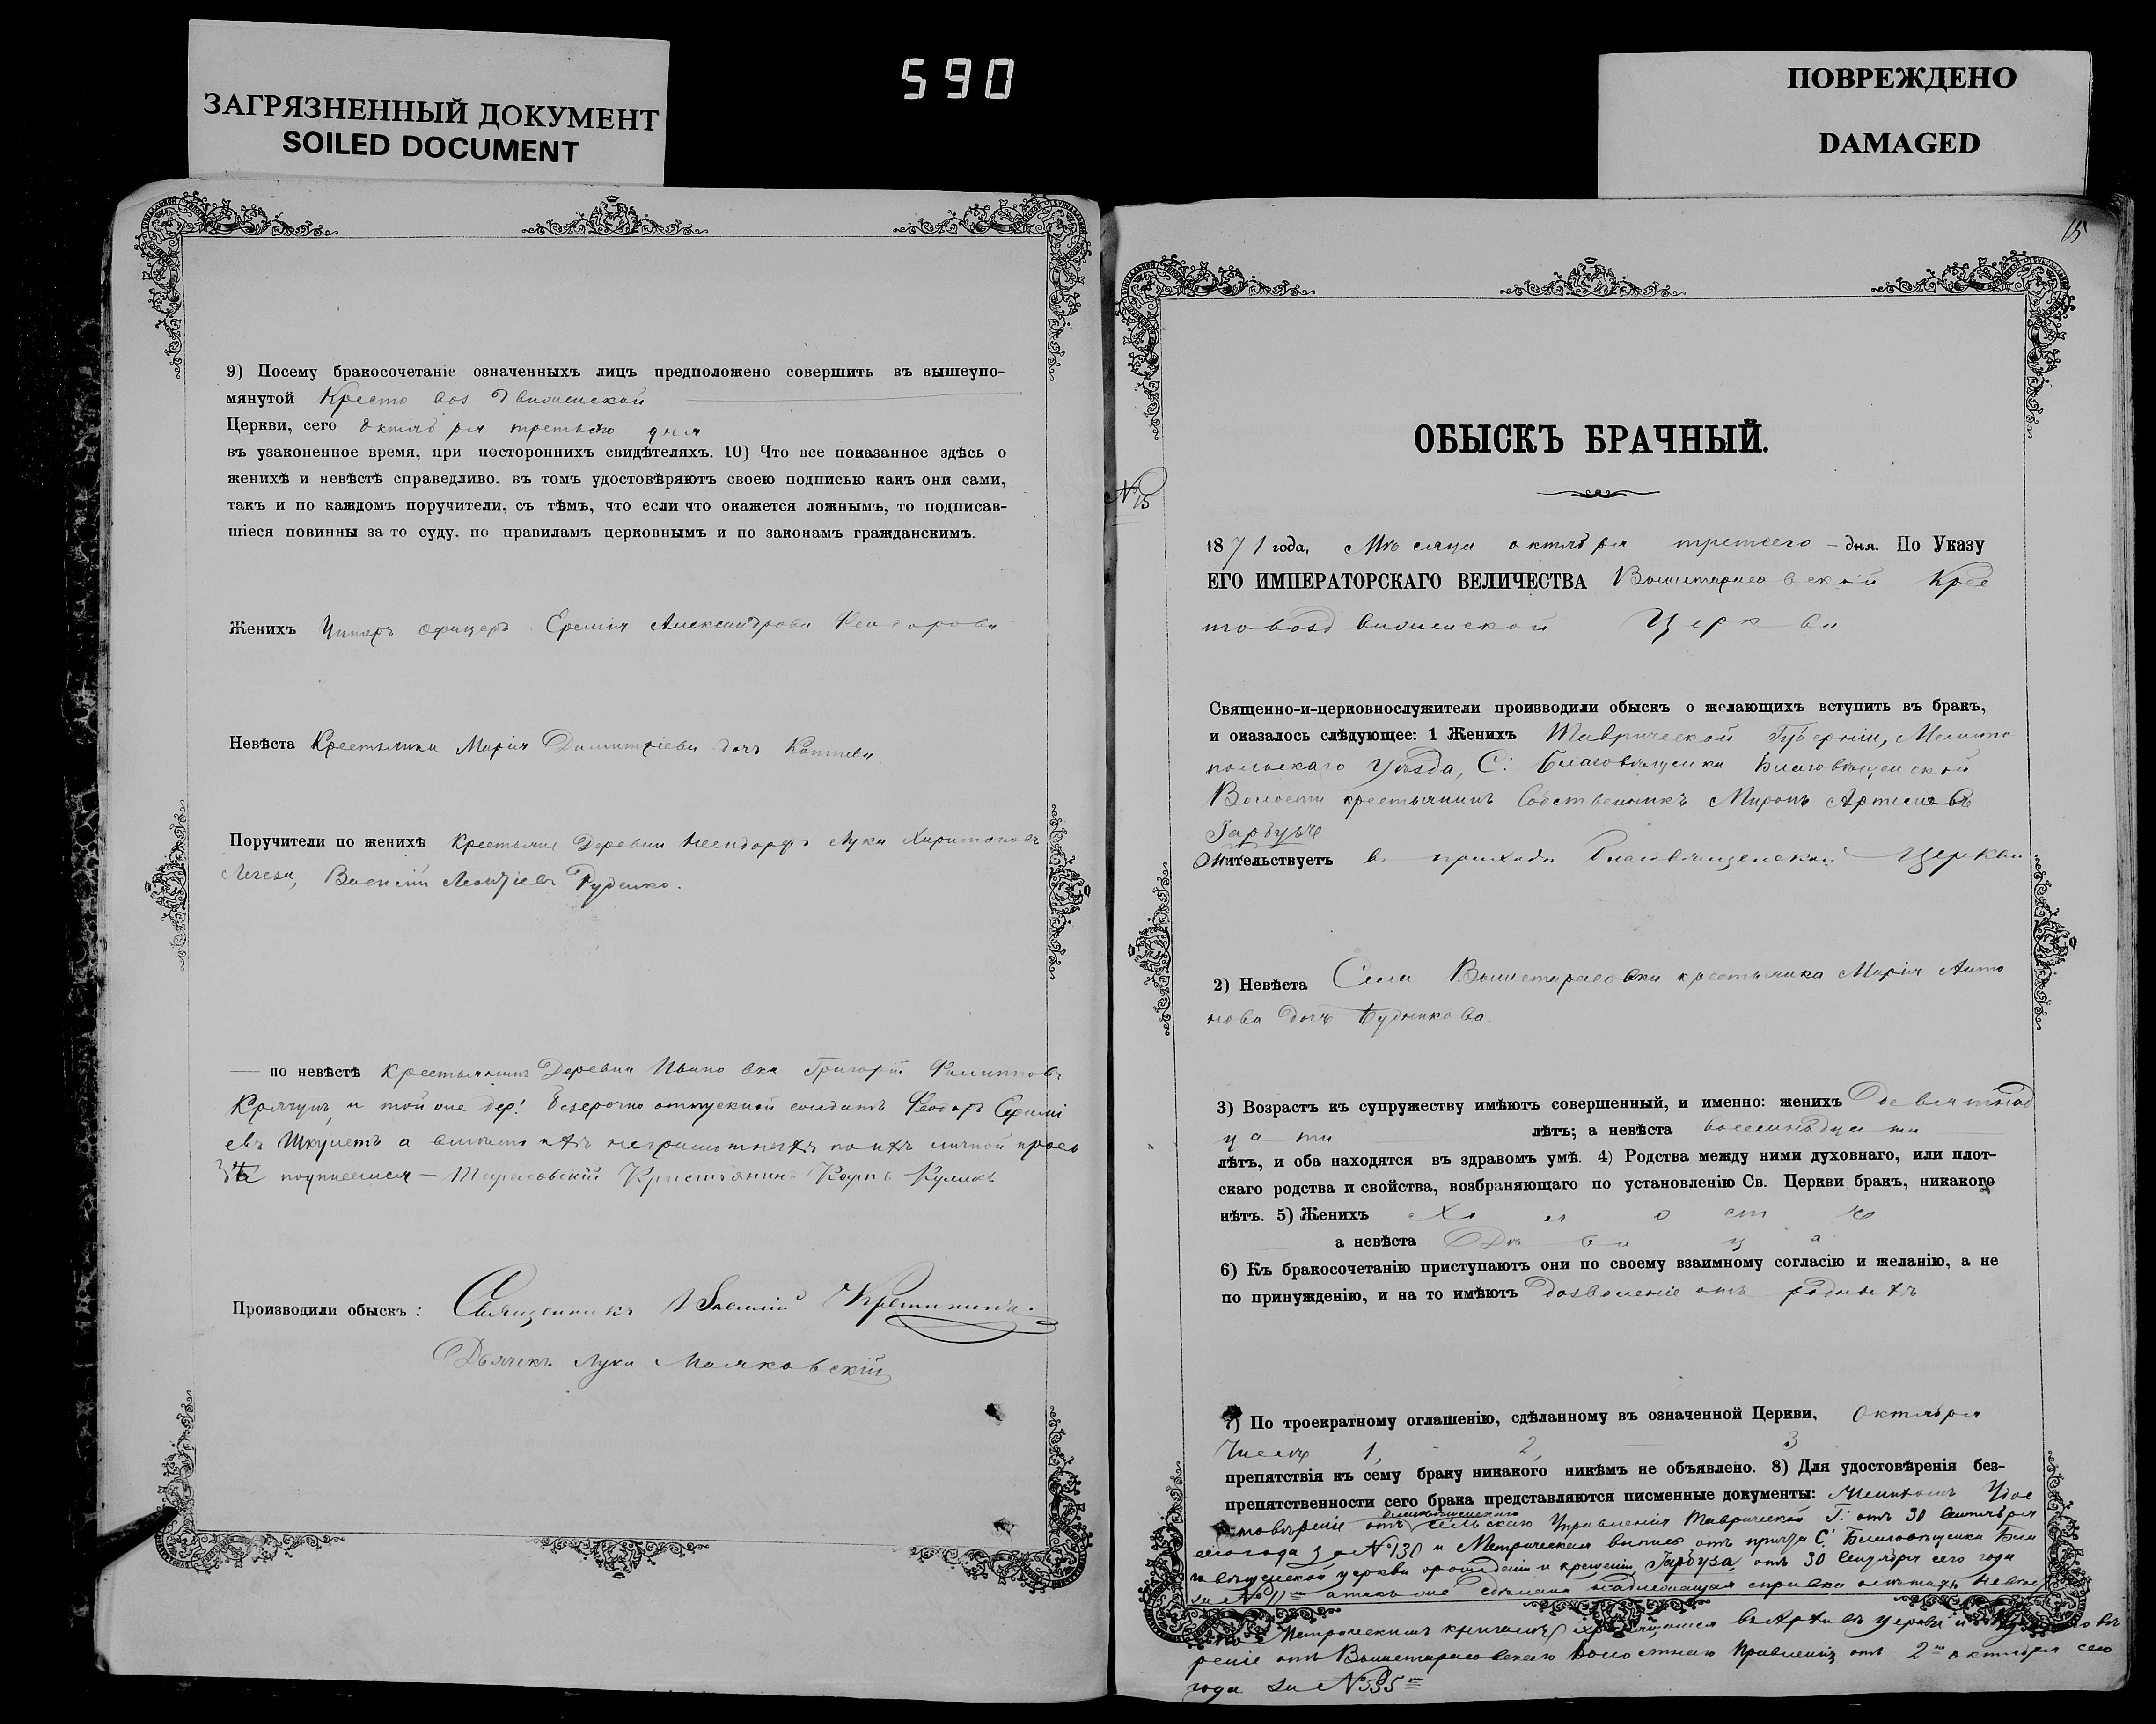 ЗАГРЯЗНЕННЫЙ ДОКУМЕНТ
SOILED DOCUMENT
590
ПОВРЕЖДЕНО
DAMAGED
9) Посему бракосочетаніе означенныхъ лицъ предположено совершить въ вышеупо-
мянутой Кресто воз движенской
Церкви, сего октяб ря третьего дня
въ узаконенное время, при постороннихъ свидѣтеляхъ. 10) Что все показанное здѣсь о
женихѣ и невѣстѣ справедливо, въ томъ удостовѣряютъ своею подписью какъ они сами,
такъ и по каждомъ поручители, съ тѣмъ, что если что окажется ложнымъ, то подписав-
шіеся повинны за то суду. по правиламъ церковнымъ и по законамъ гражданскимъ.
Женихъ Унтеръ офицеръ Еремія Александровъ
Невѣста Крестьянка Марія Димитріева дочь
Поручители по женихѣ Крестьяне Деревни Лука Харитоновъ
Василій Леонтіевъ Руденко.
по невѣстѣ крестьянинъ Деревни Ивано вки Григорій Филиповъ
и той же дер: безсрочно отпускной солдатъ Феодоръ
евъ а вместо ихъ неграмотныхъ по ихъ личной прось
бѣ подписался — Тарасовскій Кристянинъ Карпъ Куликъ
Производили обыскъ: Священникъ Василій
Дьячекъ Лука Маяковскій
15
№ 15
ОБЫСКЪ БРАЧНЫЙ.
1871 года, Мѣсяца октяб ря третьего — дня. По Указу
ЕГО ИМПЕРАТОРСКАГО ВЕЛИЧЕСТВА Вышетарасовской Крес
товозд виженской Церк ви
Священно-и-церковнослужители производили обыскъ о желающихъ вступить въ бракъ,
и оказалось слѣдующее: 1 Женихъ Таврической Губерніи, Мелито
польскаго Уѣзда, С: Благовѣщенки Благовѣщенской
Волости крестьянинъ Собственникъ Миронъ Артемовъ
Гарбузъ
Жительствуетъ въ приходѣ Благовѣщенской Церкви
2) Невѣста Села Вышетарасовки крестьянка Марія Анто
нова дочь Будникова.
3) Возрастъ къ супружеству имѣютъ совершенный, и именно: женихъ Девятнад
ца ти лѣтъ; а невѣста восемнадца ти
лѣтъ, и оба находятся въ здравомъ умѣ. 4) Родства между ними духовнаго, или плот-
скаго родства и свойства, возбраняющаго по установленію Св. Церкви бракъ, никакого
нѣтъ. 5) Женихъ Хо л о ст ъ
а невѣста Дѣ ви ц а
6) Къ бракосочетанію приступаютъ они по своему взаимному согласію и желанію, а не
по принужденію, и на то имѣютъ дозволеніе отъ родныхъ
7) По троекратному оглашенію, сдѣланному въ означенной Церкви, Октября
Числъ 1, 2, 3
препятствія къ сему браку никакого никѣмъ не объявлено. 8) Для удостовѣренія без-
препятственности сего брака представляются писменные документы: Женихомъ Удос
товѣреніе отъ Благовѣщенскаго сельскаго Управленія Таврической Г: отъ 30 Сентября
сего года за № 130 и Метрическая выпись отъ причта С: Благовѣщенки Бла
говѣщенской церкви о рожденіи и крещеніи Гарбуза, отъ 30 Сентября сего года
за № 11 а также сделана надлежащая справка о лѣтахъ невес
ты по Метрическимъ книгамъ хранящимся въ Архивѣ церкви и Удостовѣ
реніе отъ Вышетарасовскаго Волостнаго Правленія отъ 2 октября сего
года за № 535